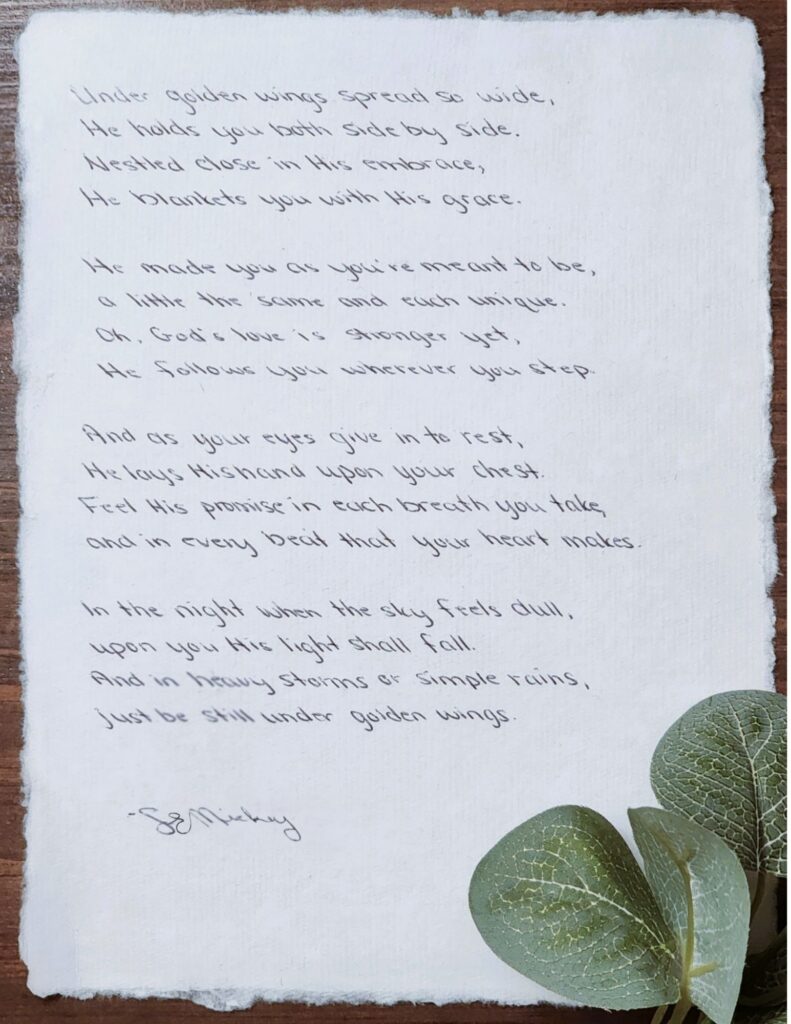 Under golden wings spread so wide,
He holds you both side by side.
Nestled close in His embrace,
He blankets you with His grace.
He made you as you're meant to be,
a little the same and each unique.
Oh, God's love is stronger yet,
He follows you wherever you step.
And as your eyes give in to rest,
He lays His hand upon your chest.
Feel His promise in each breath you take,
and in every beat that your heart makes.
In the night when the sky feels dull,
upon you His light shall fall.
And in heavy storms or simple rains,
just be still under golden wings.